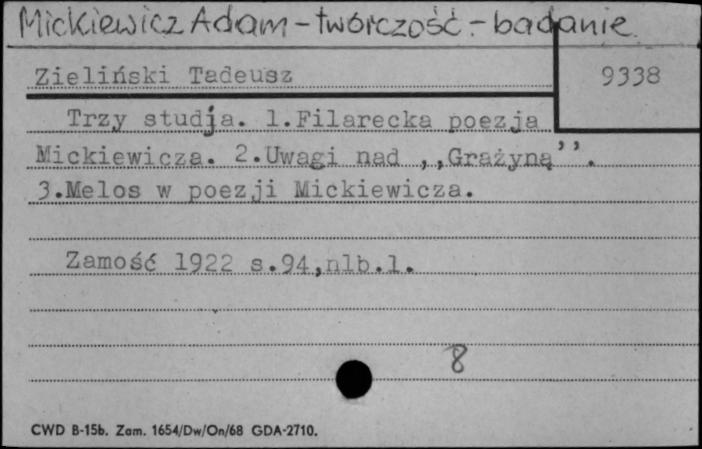 Mickiewicz Adam - twórczość - badanie
Zieliński Tadeusz
9338
Trzy studja. 1.Filarecka poezja
Mickiewicza. 2.Uwagi nad ,,Grażyną''.
3.Melos w poezji Mickiewicza.
Zamość 1922 s.94,nlb.1.
8
CWD B-15b. Zam. 1654/Dw/On/68 GDA-2710.